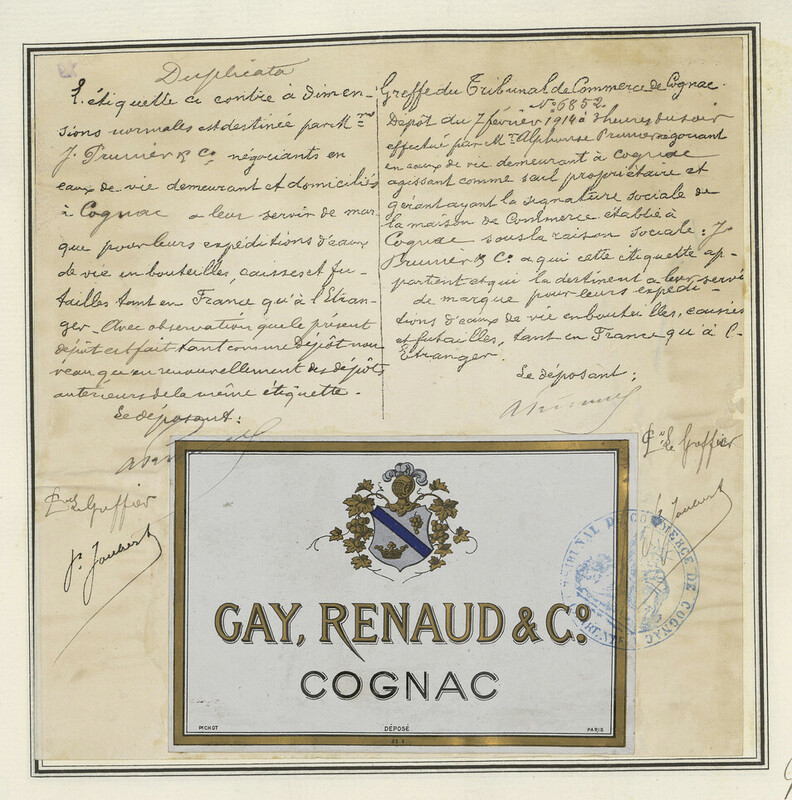 Duplicata
L'étiquette ci contre à dimen-
sions normales est destinée par M
J. Prunier & Co négociants en
eaux de vie demeurant et domiciliés
à Cognac a leur servir de mar-
que pour leurs expéditions d'eaux
de vie en bouteilles, caisses et fu-
tailles tant en France qu'à l'Etran-
ger. Avec observation que le présent
dépôt est fait tant comme Dépôt nou-
veau qu'en renouvellement des dépôts
antérieurs de la même étiquette.
Le déposant:
le Greffier
Joubert
Greffe du Tribunal de Commerce de Cognac.
No 6852.
Dépôt du 7 février 1914 à heures du soir
effectué par Mr Alphonse Prunier négociant
en eaux de vie demeurant à Cognac
agissant comme seul propriétaire et
gérant ayant la signature sociale de
la maison de Commerce établie à
Cognac sous la raison sociale: J.
Prunier & Co a qui cette étiquette ap-
partient et qui la destinent a leur servir
de marque pour leurs expédi-
tions d'eaux de vie en bouteilles, caisses
et futailles, tant en France qu'à l'-
Etranger.
Le déposant:
le Greffier
Joubert
TRIBUNAL DE COMMERCE DE COGNAC
GAY, RENAUD & Co.
COGNAC
PICHOT DÉPOSÉ PARIS